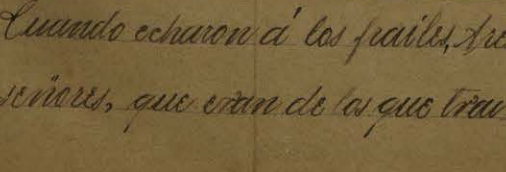 Cuando echaron á los frailes, tre
señores, que eran de los que trai